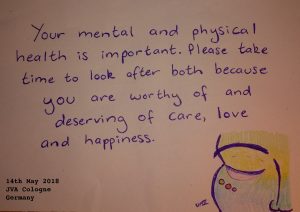 Your mental and physical
health is important. Please take
time to look after both because
you are worthy of and
deserving of care, love
and happiness.
14th May 2018
JVA Cologne
Germany